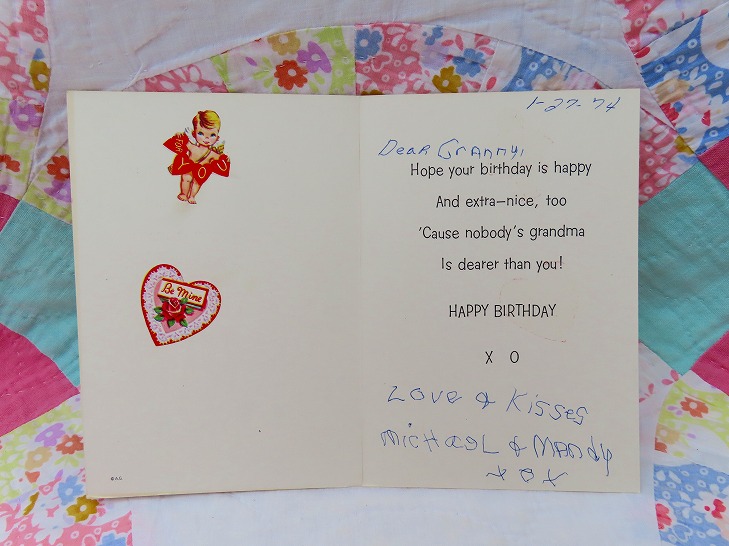 FOR
YOU
Be Mine
©A.G.
1-27-74
Dear Granny,
Hope your birthday is happy
And extra—nice, too
'Cause nobody's grandma
Is dearer than you!
HAPPY BIRTHDAY
X O
Love & Kisses
Michael & Mandy
X O X